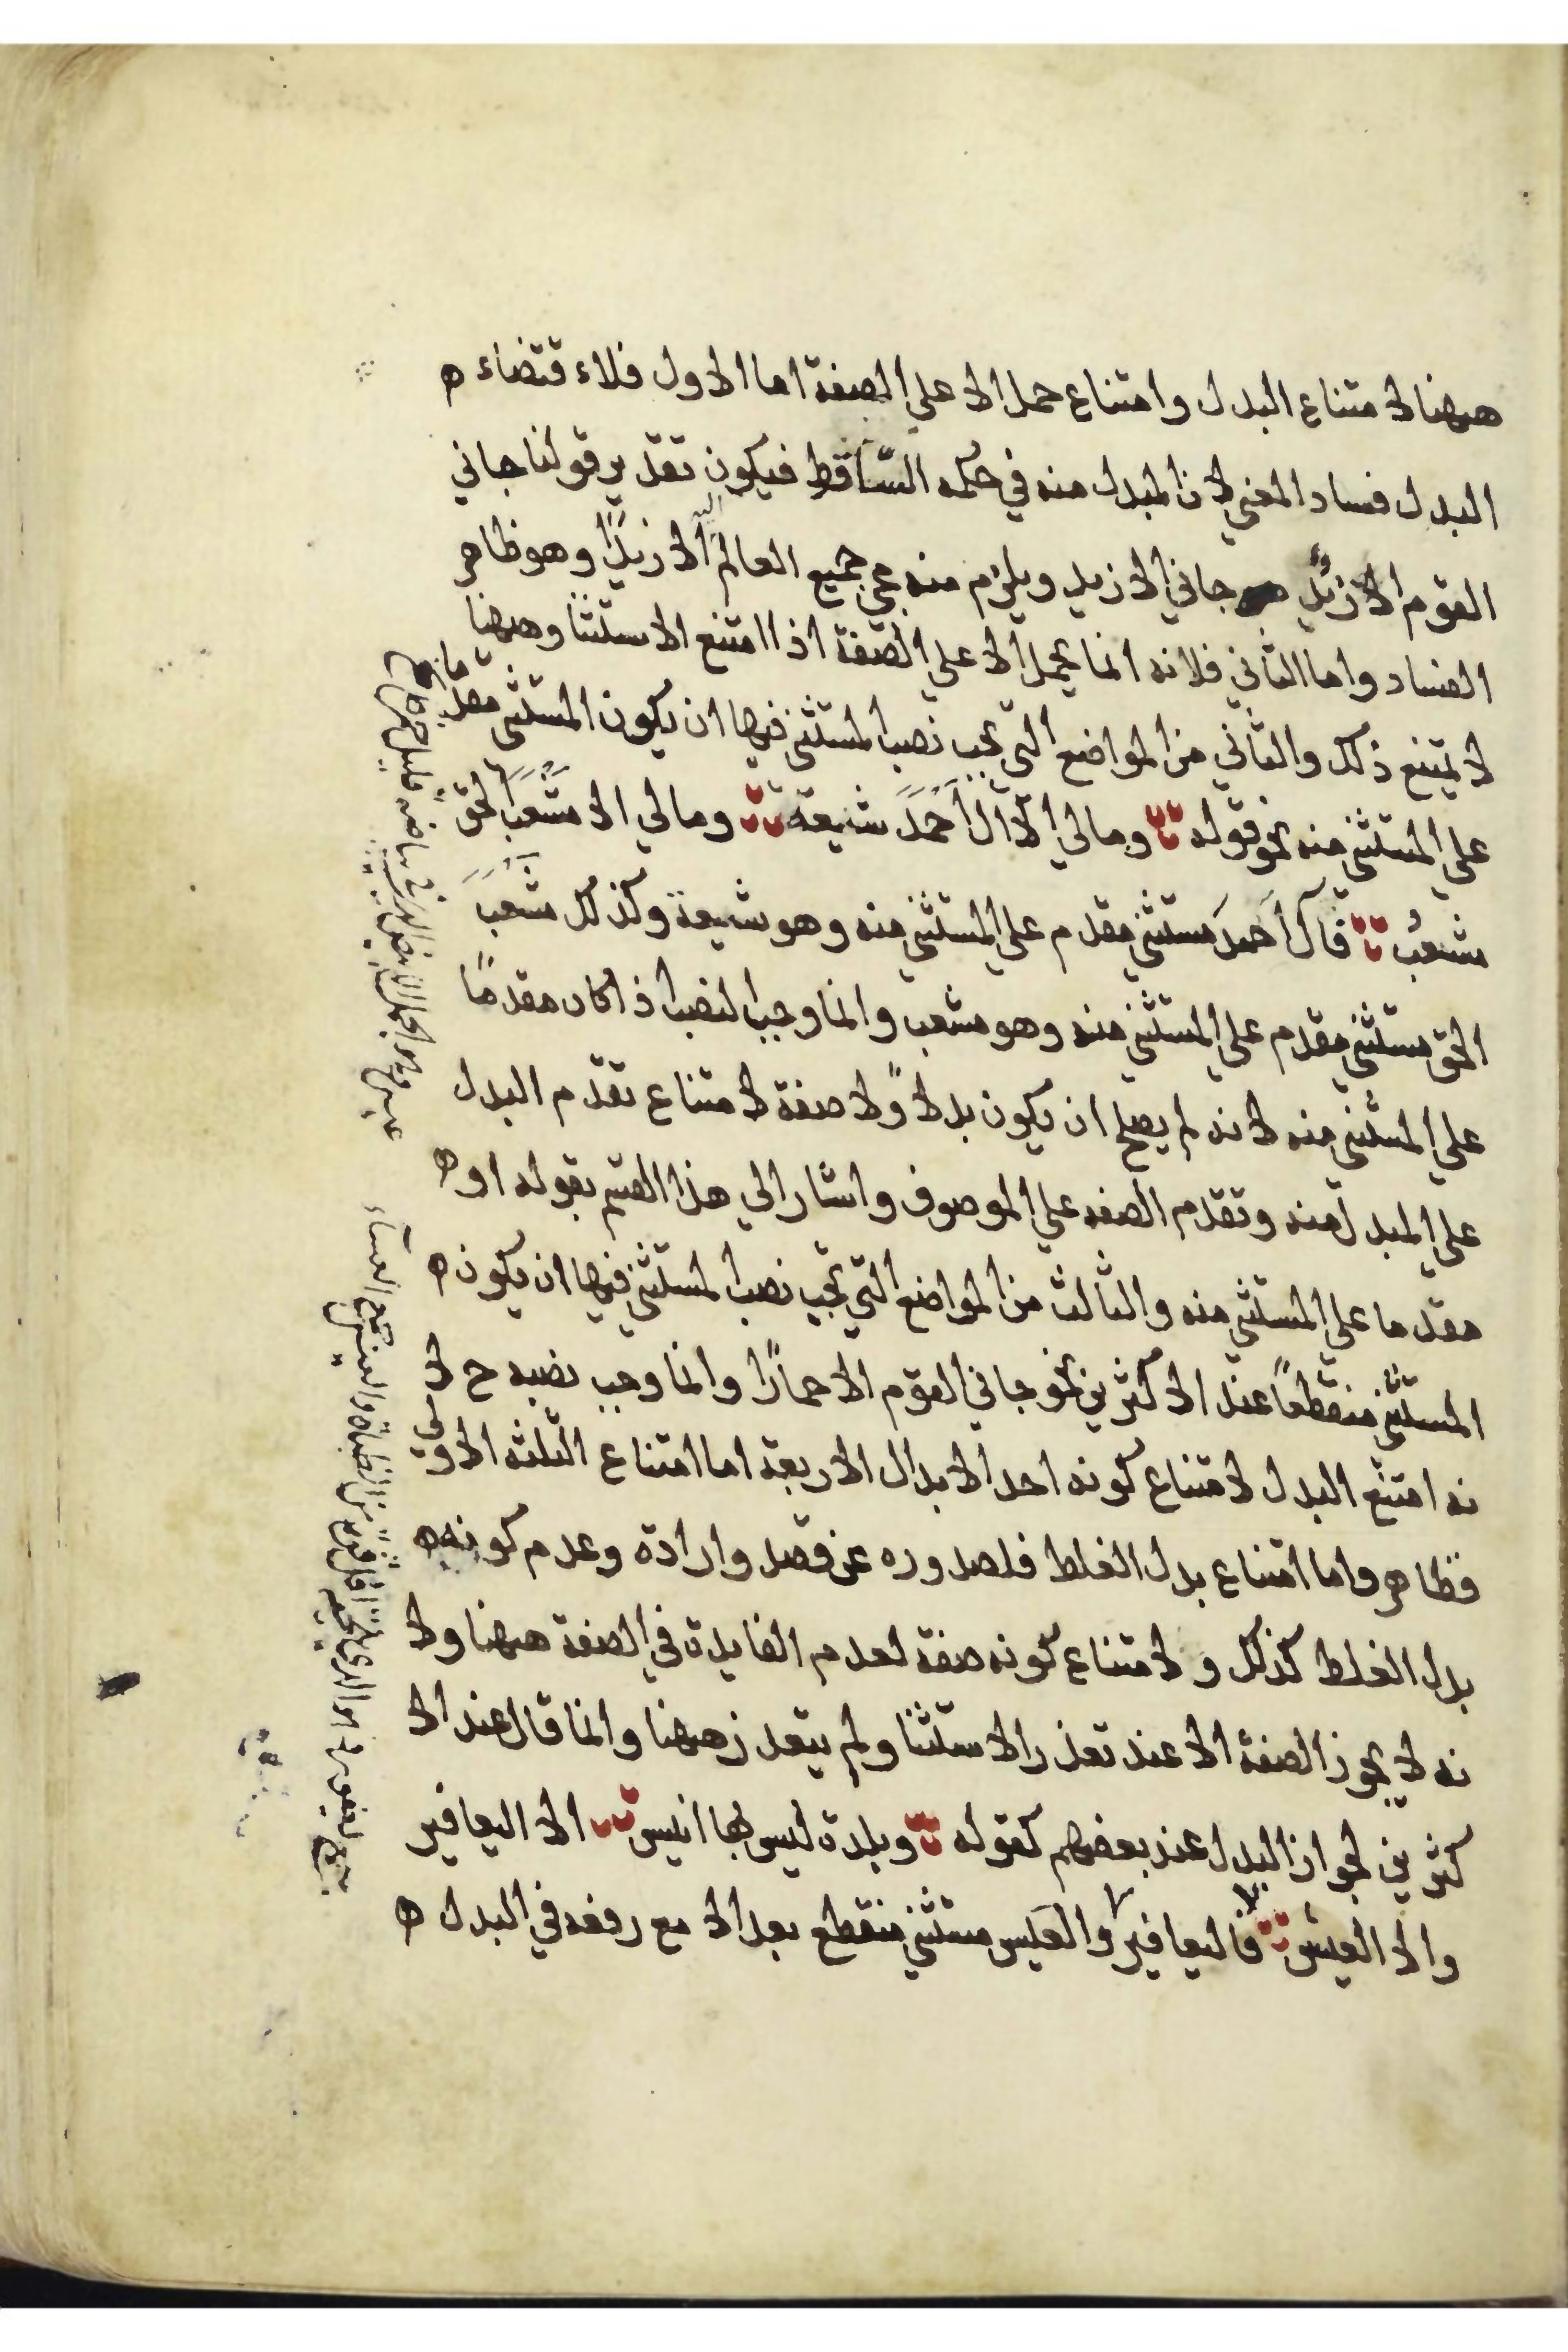 ههنا لا متناع البدل وامتناع حمل الا علي الصفة اما الاول فلاء قتضاء ه
البدل فساد المعني لان المبدل منه في حكم السّاقط فيكون تقدير قولنا جاني
القوم الا زيدٌ جاني الا زيد ويلزم منه مجي جميع العالم الا زيدًا وهو ظاهر
الفساد واما الثاني فلانه انما يحمل الا علي الصفة اذا امتنع الاستثنا وههنا
لا يمتنع ذلك والثاني من المواضع التي يجب نصب المستثني فيها ان يكون المستثني مقدما
علي المستثني منه نحو قوله وما لي الّا آلَ أحْمَدَ شيعة وما لي الا مَشْعَبَ الحق
مشعبُ فآل أحمدَ مستثني مقدم علي المستثني منه وهو شيعة وكذلك مشعبَ
الحق مستثني مقدم علي المستثني منه وهو مشعب وانما وجب النصب اذا كان مقدمًا
علي المستثني منه لانه لم يصح ان يكون بدلا ولا صفة لا متناع تقدم البدل
علي المبدل منه وتقدم الصفه علي الموصوف واشار الي هذا القسم بقوله او ه
مقدما علي المستثني منه والثالث من المواضع التي يجب نصب المستثني فيها ان يكون ه
المستثني منقطعًا عند الا كثرين نحو جاني القوم الا حمارًا وانما وجب نصبه ح لا
نه امتنع البدل لا متناع كونه احد الابدال الاربعة اما امتناع الثلثه الاولي
فظاهر واما امتناع بدل الغلط فلصدوره عن قصد وارادة وعدم كونه ه
بدل الغلط كذلك ولا متناع كونه صفة لعدم الفايدة في الصفة ههنا ولا
نه لا يجوز الصفة الا عند تعذر الاستثنا ولم يتعد زههنا وانما قال عند الا
كثرين لجواز البدل عند بعضهم كقوله وبلدة ليس لها انيس الا اليعافير
والا العيس فاليعافير والعيس مستثني منقطع بعد الا مع رفعه في البدل ه